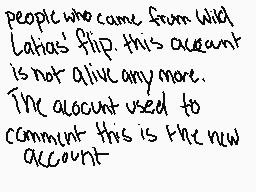 people who came from Wild
Latias' flip. this account
is not alive any more.
The alocunt used to
comment this is the new
account